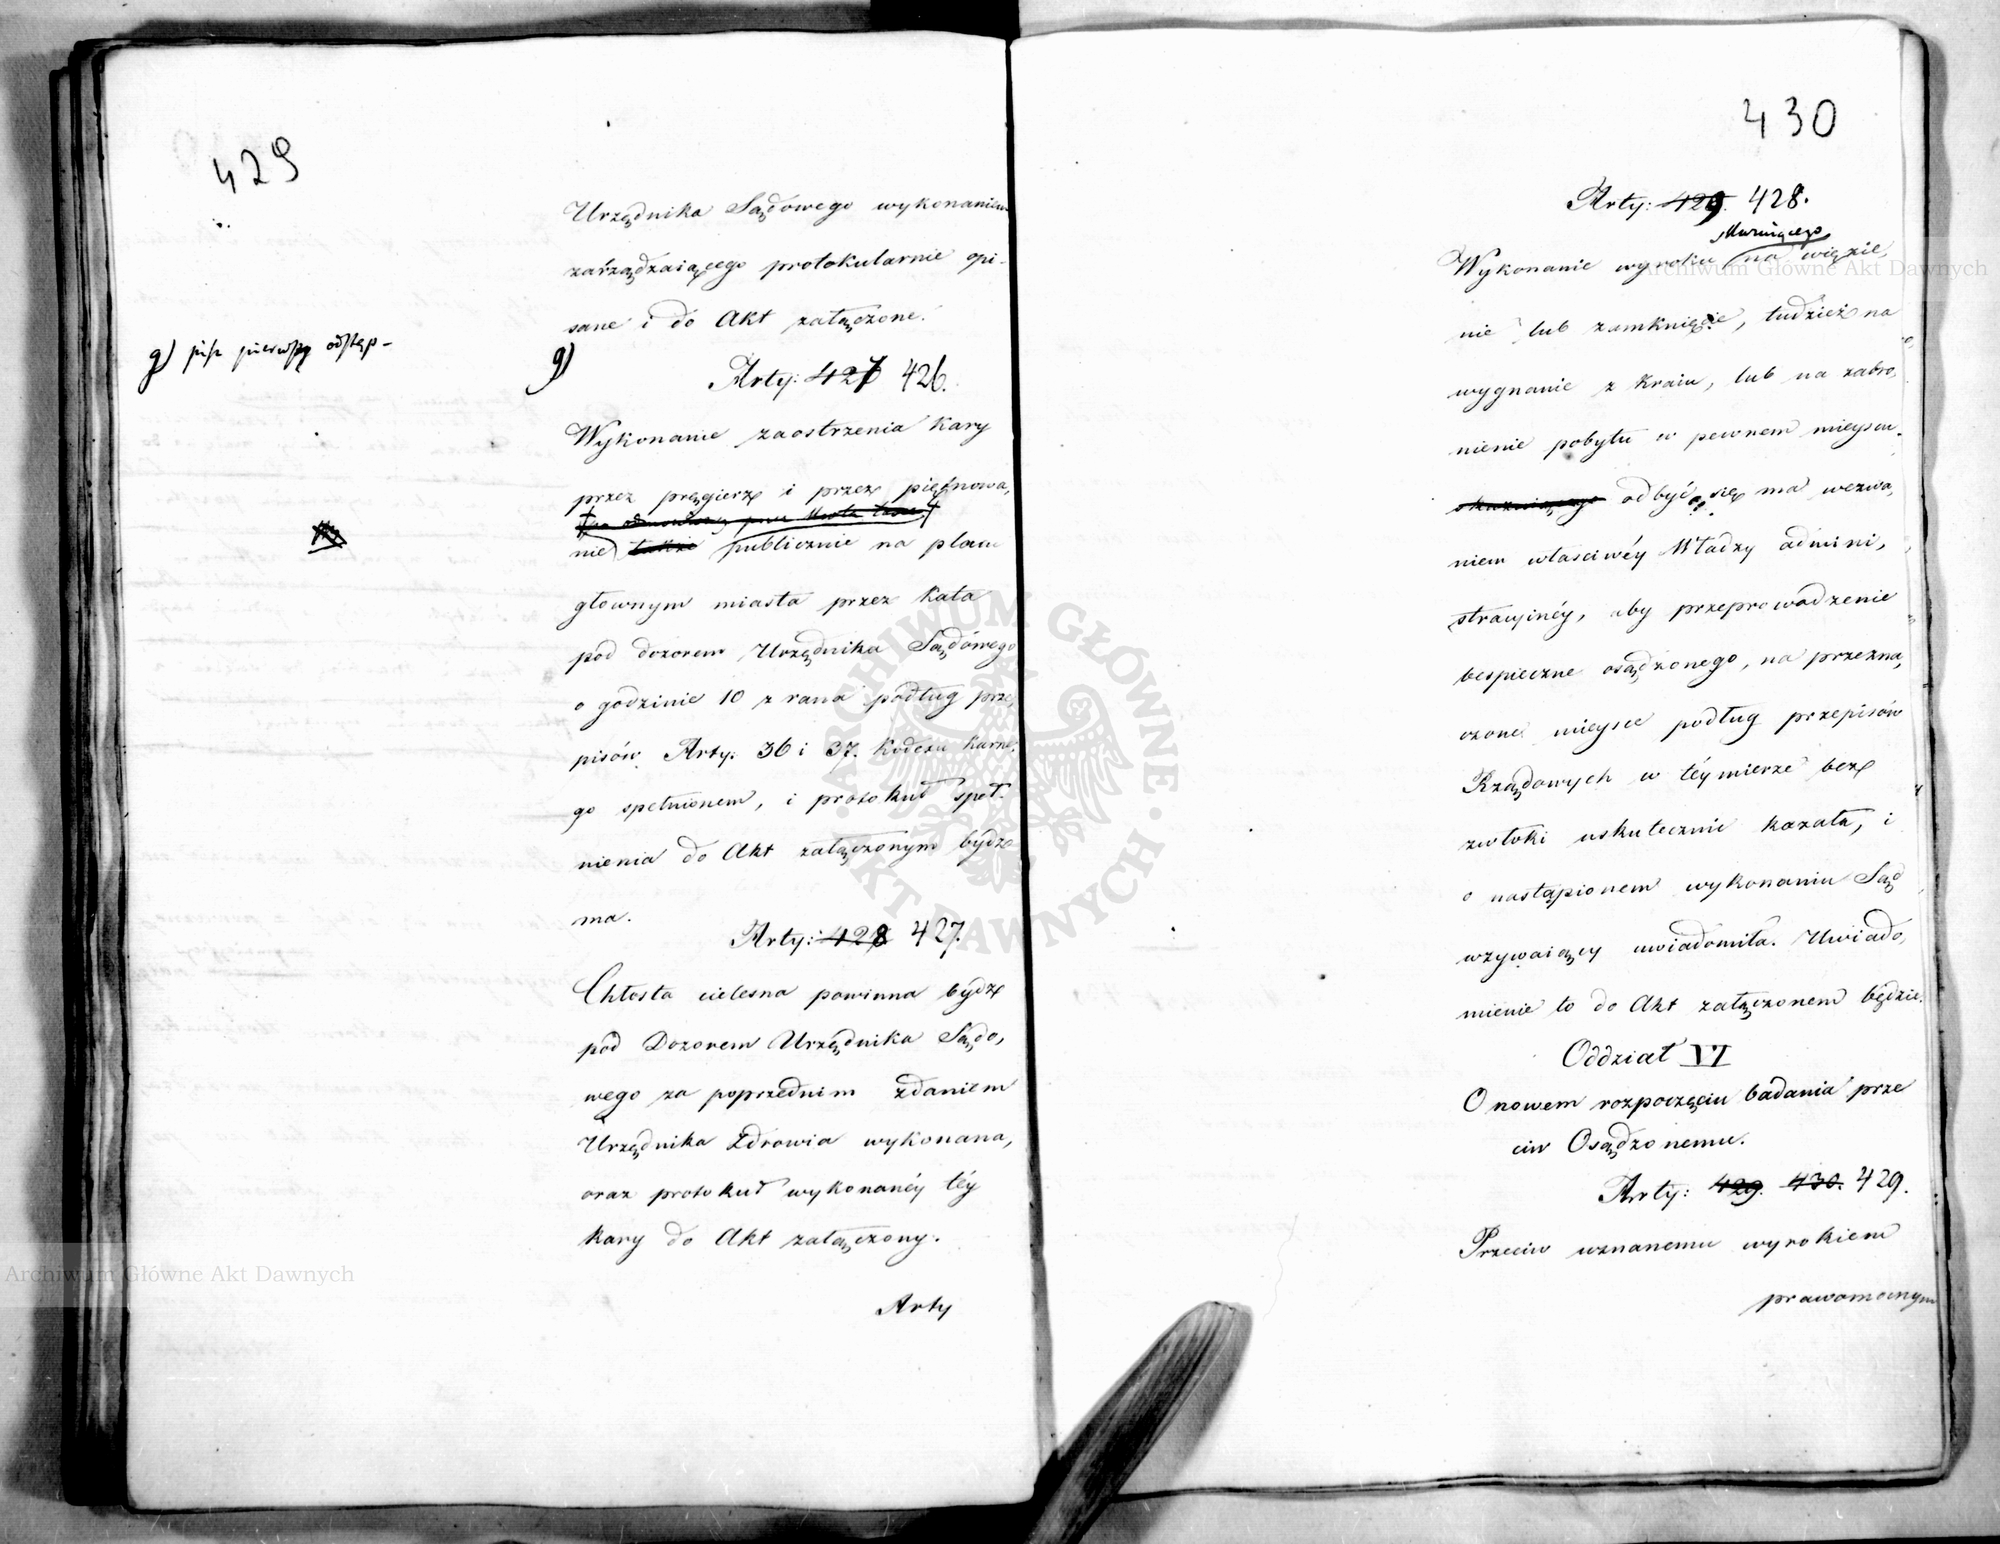 429
Urzędnika Sądowego wykonaniem
zarządzaiącego protokularnie opi-
sane i do Akt załączone.
g) pisz pierwszy odstęp-
g)
Arty: 427 426.
Wykonanie zaostrzenia kary
przez pręgierz i przez piętnowa,
nie także publicznie na placu
głownym miasta przez kata
pod dozorem Urzędnika Sądowego
o godzinie 10 z rana podług prze,
pisów Arty. 36 i 37. Kodexu karne,
go spełnionem, i protokuł speł-
nienia do Akt załączonym bydz
ma.
Arty: 428 427.
Chłosta cielesna powinna bydz
pod Dozorem Urzędnika Sądo,
wego za poprzednim zdaniem
Urzędnika Zdrowia wykonana,
oraz protokuł wykonanéy téy
kary do Akt załączony.
Arty
430
Arty: 429. 428.
Wykonanie wyroku na więzie,
nie lub zamknięcie, tudzież na
wygnanie z kraiu, lub na zabro,
nienie pobytu w pewnem mieyscu
skazuiącego odbyć się ma wezwa,
niem właściwéy Władzy admini,
stracyinéy, aby przeprowadzenie
bespieczne osądzonego, na przezna,
czone mieysce podług przepisów
Rządowych w téy mierze bez
zwłoki uskutecznić kazała, i
o nastąpionem wykonaniu Sąd
wzywaiący uwiadomiła. Uwiado,
mienie to do Akt załączonem będzie.
Oddział VI
O nowem rozpoczęciu badania prze
ciw Osądzonemu.
Arty: 429. 430. 429.
Przeciw uznanemu wyrokiem
prawomocnym
ARCHIWUM GŁÓWNE AKT DAWNYCH
Archiwum Główne Akt Dawnych
Archiwum Główne Akt Dawnych